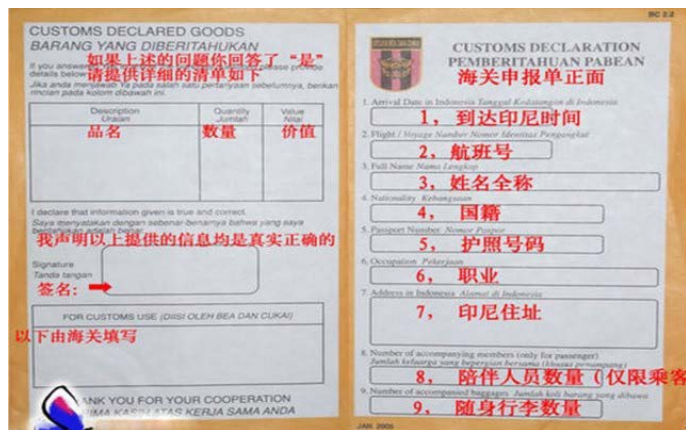 CUSTOMS DECLARED GOODS
BARANG YANG DIBERITAHUKAN
如果上述的问题你回答了“是”
请提供详细的清单如下
details below
Jika anda menjawab Ya pada salah satu pertanyaan sebelumnya, berikan
rincian pada kolom dibawah ini.
Description Quantity Value
Uraian Jumlah Nilai
品名 数量 价值
I declare that information given is true and correct.
Saya menyatakan dengan sebenar benarnya bahwa yang saya
我声明以上提供的信息均是真实正确的
Signature
Tanda tangan
签名:
FOR CUSTOMS USE (DIISI OLEH BEA DAN CUKAI)
以下由海关填写
ANK YOU FOR YOUR COOPERATION
IMA KASIH ATAS KERJA SAMA ANDA
BC 2.2
CUSTOMS DECLARATION
PEMBERITAHUAN PABEAN
海关申报单正面
1. Arrival Date in Indonesia Tanggal Kedatangan di Indonesia
1, 到达印尼时间
2. Flight / Voyage Number Nomor Identitas Pengangkut
2, 航班号
3. Full Name Nama Lengkap
3, 姓名全称
4. Nationality Kebangsaan
4, 国籍
5. Passport Number Nomor Paspor
5, 护照号码
6. Occupation Pekerjaan
6, 职业
7. Address in Indonesia Alamat di Indonesia
7, 印尼住址
8. Number of accompanying members (only for passenger)
Jumlah keluarga yang bepergian bersama (khusus penumpang)
8, 陪伴人员数量(仅限乘客
9. Number of accompanied baggages Jumlah koli barang yang dibawa
9, 随身行李数量
JAN. 2005